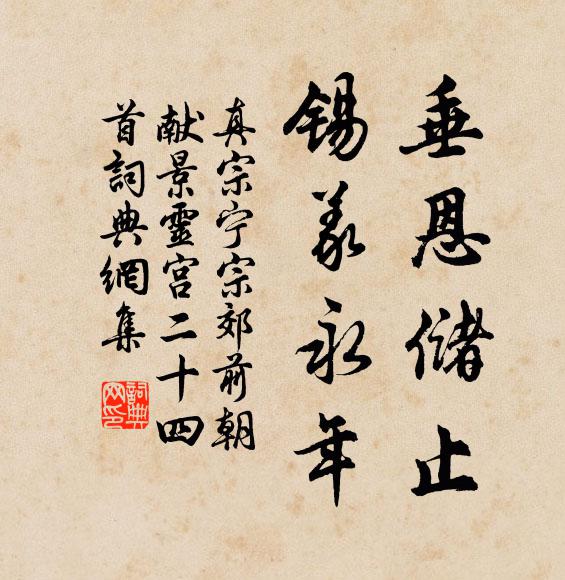 垂恩储止
锡羡永年
真宗宁宗郊前朝
献景灵宫二十四
首词典網集
詞典網印